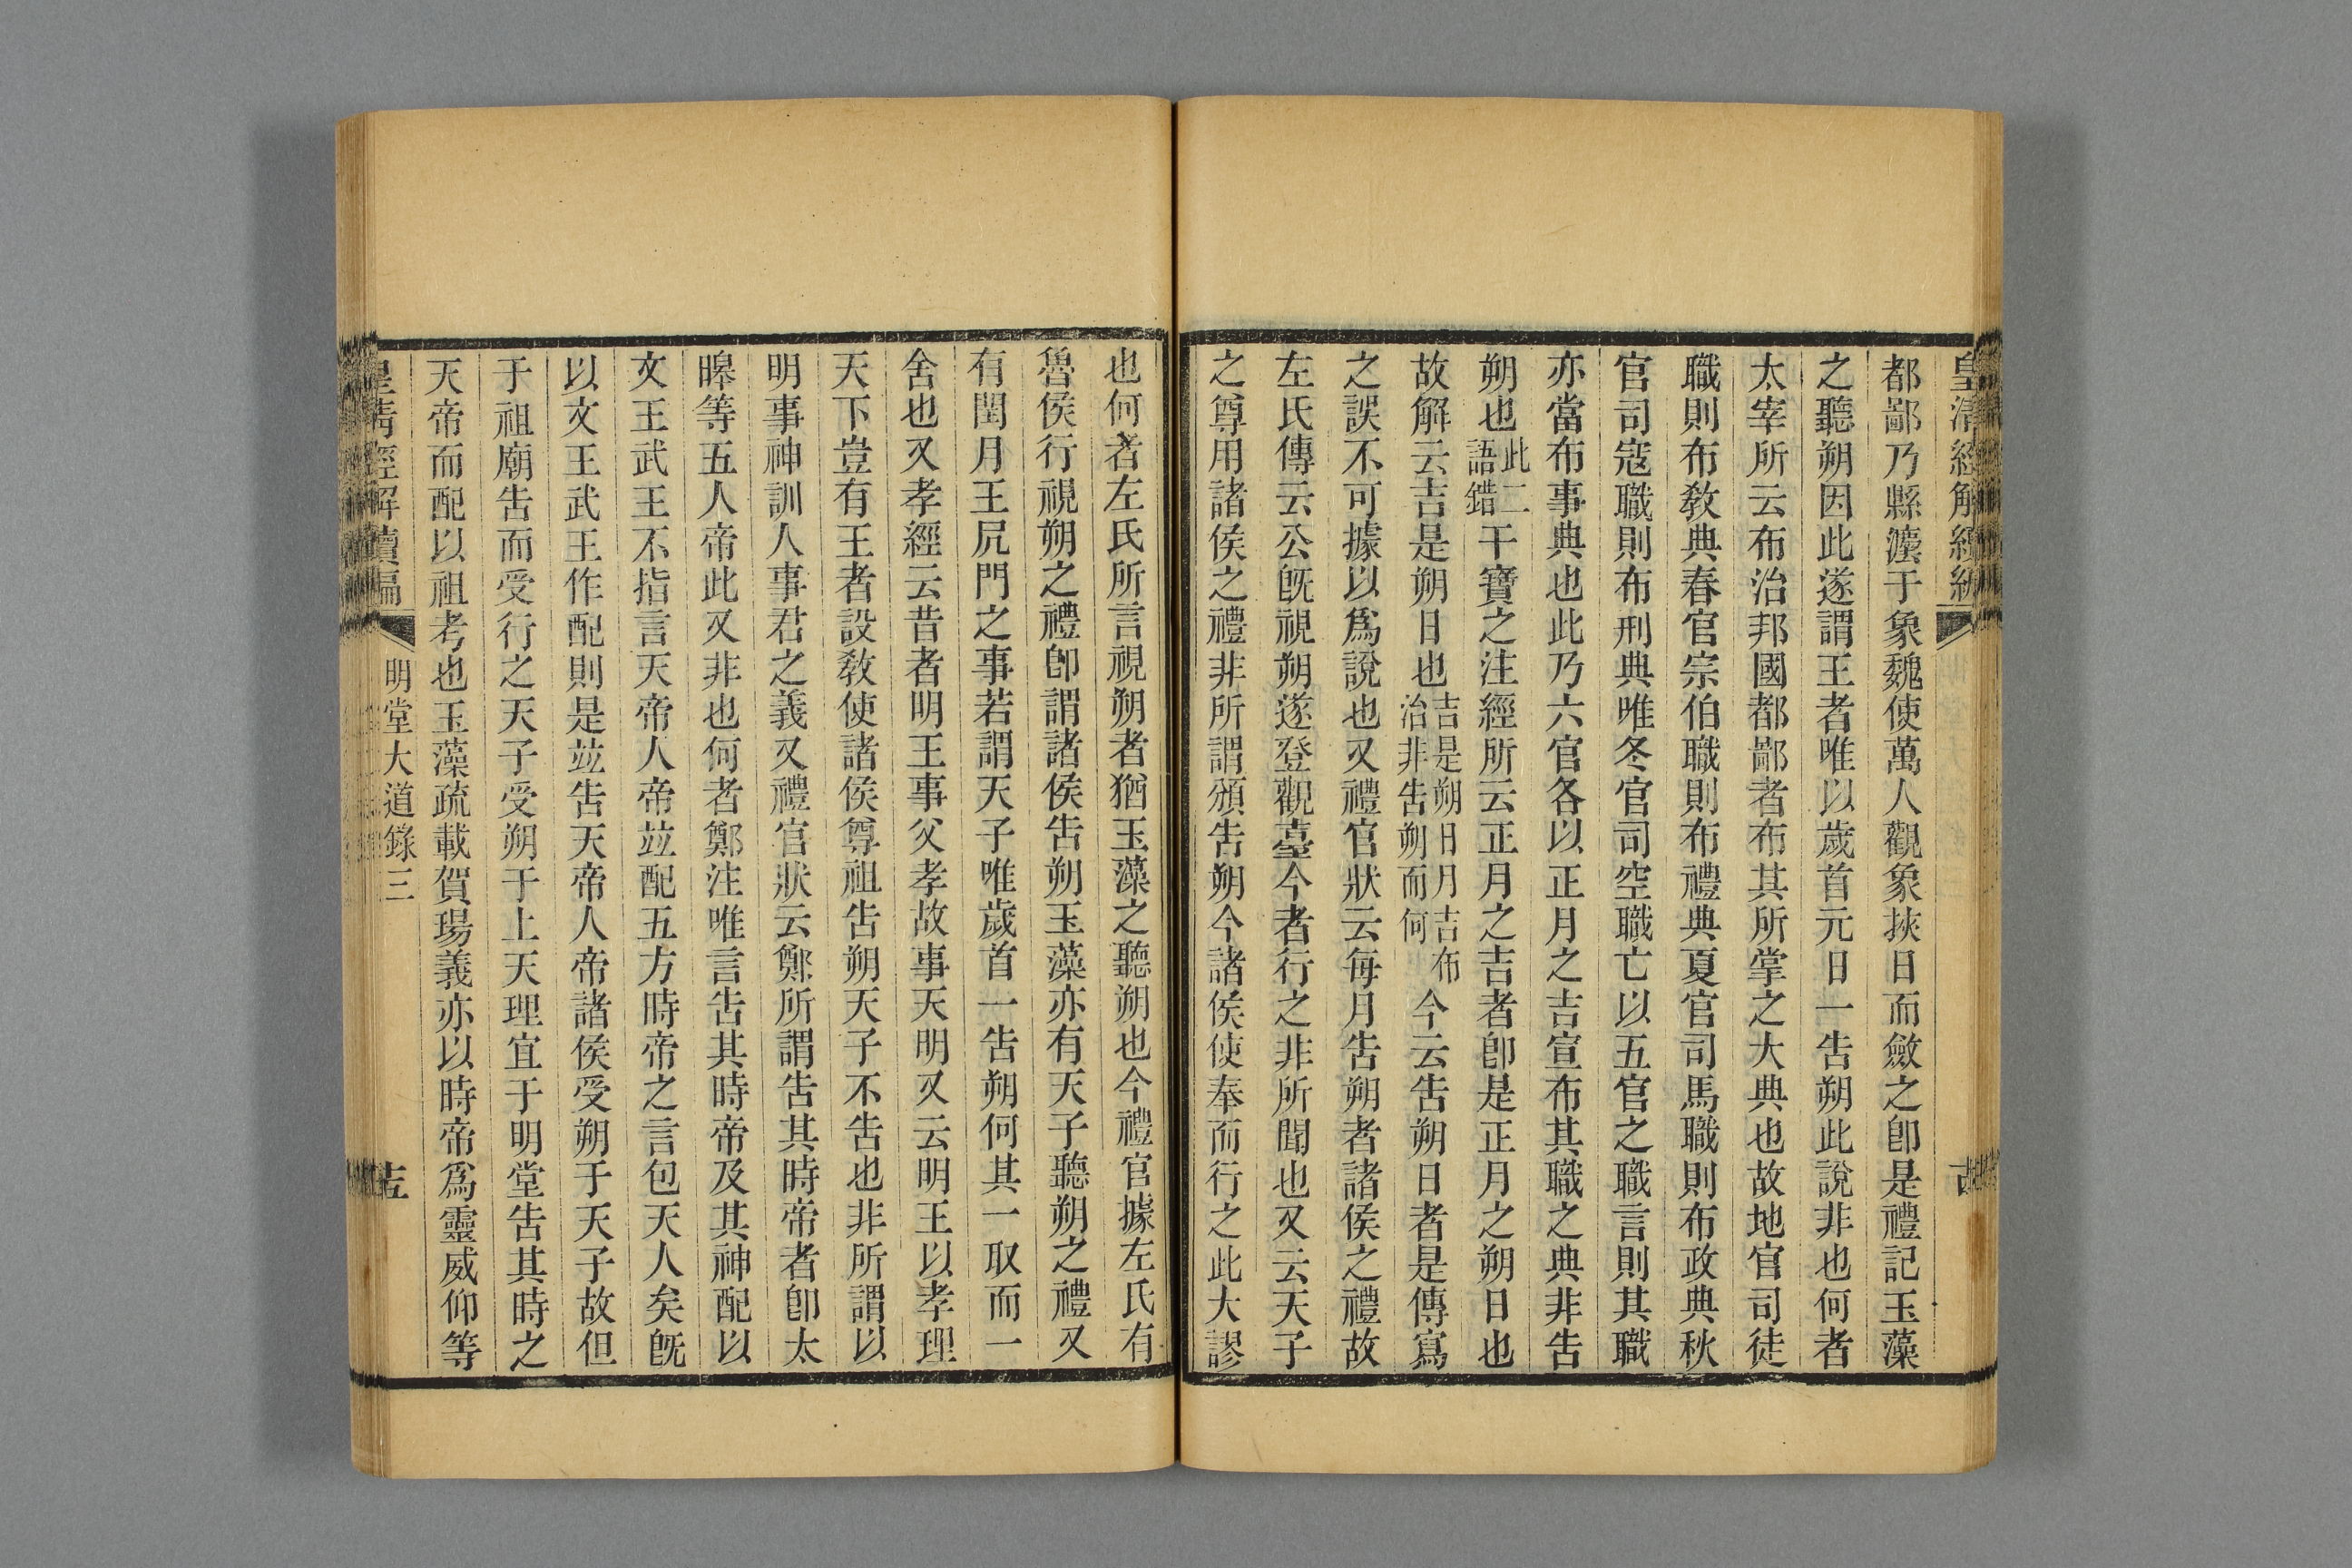 皇清經解續編
都鄙乃縣灋于象魏使萬人觀象挾日而斂之卽是禮記玉藻
之聽朔因此遂謂王者唯以歲首元日一告朔此說非也何者
太宰所云布治邦國都鄙者布其所掌之大典也故地官司徒
職則布敎典春官宗伯職則布禮典夏官司馬職則布政典秋
官司寇職則布刑典唯冬官司空職亡以五官之職言則其職
亦當布事典也此乃六官各以正月之吉宣布其職之典非告
朔也此二語錯干寶之注經所云正月之吉者卽是正月之朔日也
故解云吉是朔日也吉是朔日月吉布治非告朔而何今云告朔日者是傳寫
之誤不可據以爲說也又禮官狀云每月告朔者諸侯之禮故
左氏傳云公旣視朔遂登觀臺今者行之非所聞也又云天子
之尊用諸侯之禮非所謂頒告朔今諸侯使奉而行之此大謬
也何者左氏所言視朔者猶玉藻之聽朔也今禮官據左氏有
魯侯行視朔之禮卽謂諸侯告朔玉藻亦有天子聽朔之禮又
有閏月王凥門之事若謂天子唯歲首一告朔何其一取而一
舍也又孝經云昔者明王事父孝故事天明又云明王以孝理
天下豈有王者設敎使諸侯尊祖告朔天子不告也非所謂以
明事神訓人事君之義又禮官狀云鄭所謂告其時帝者卽太
皥等五人帝此又非也何者鄭注唯言告其時帝及其神配以
文王武王不指言天帝人帝竝配五方時帝之言包天人矣旣
以文王武王作配則是竝告天帝人帝諸侯受朔于天子故但
于祖廟告而受行之天子受朔于上天理宜于明堂告其時之
天帝而配以祖考也玉藻疏載賀瑒義亦以時帝爲靈威仰等
皇清經解續編
明堂大道錄三